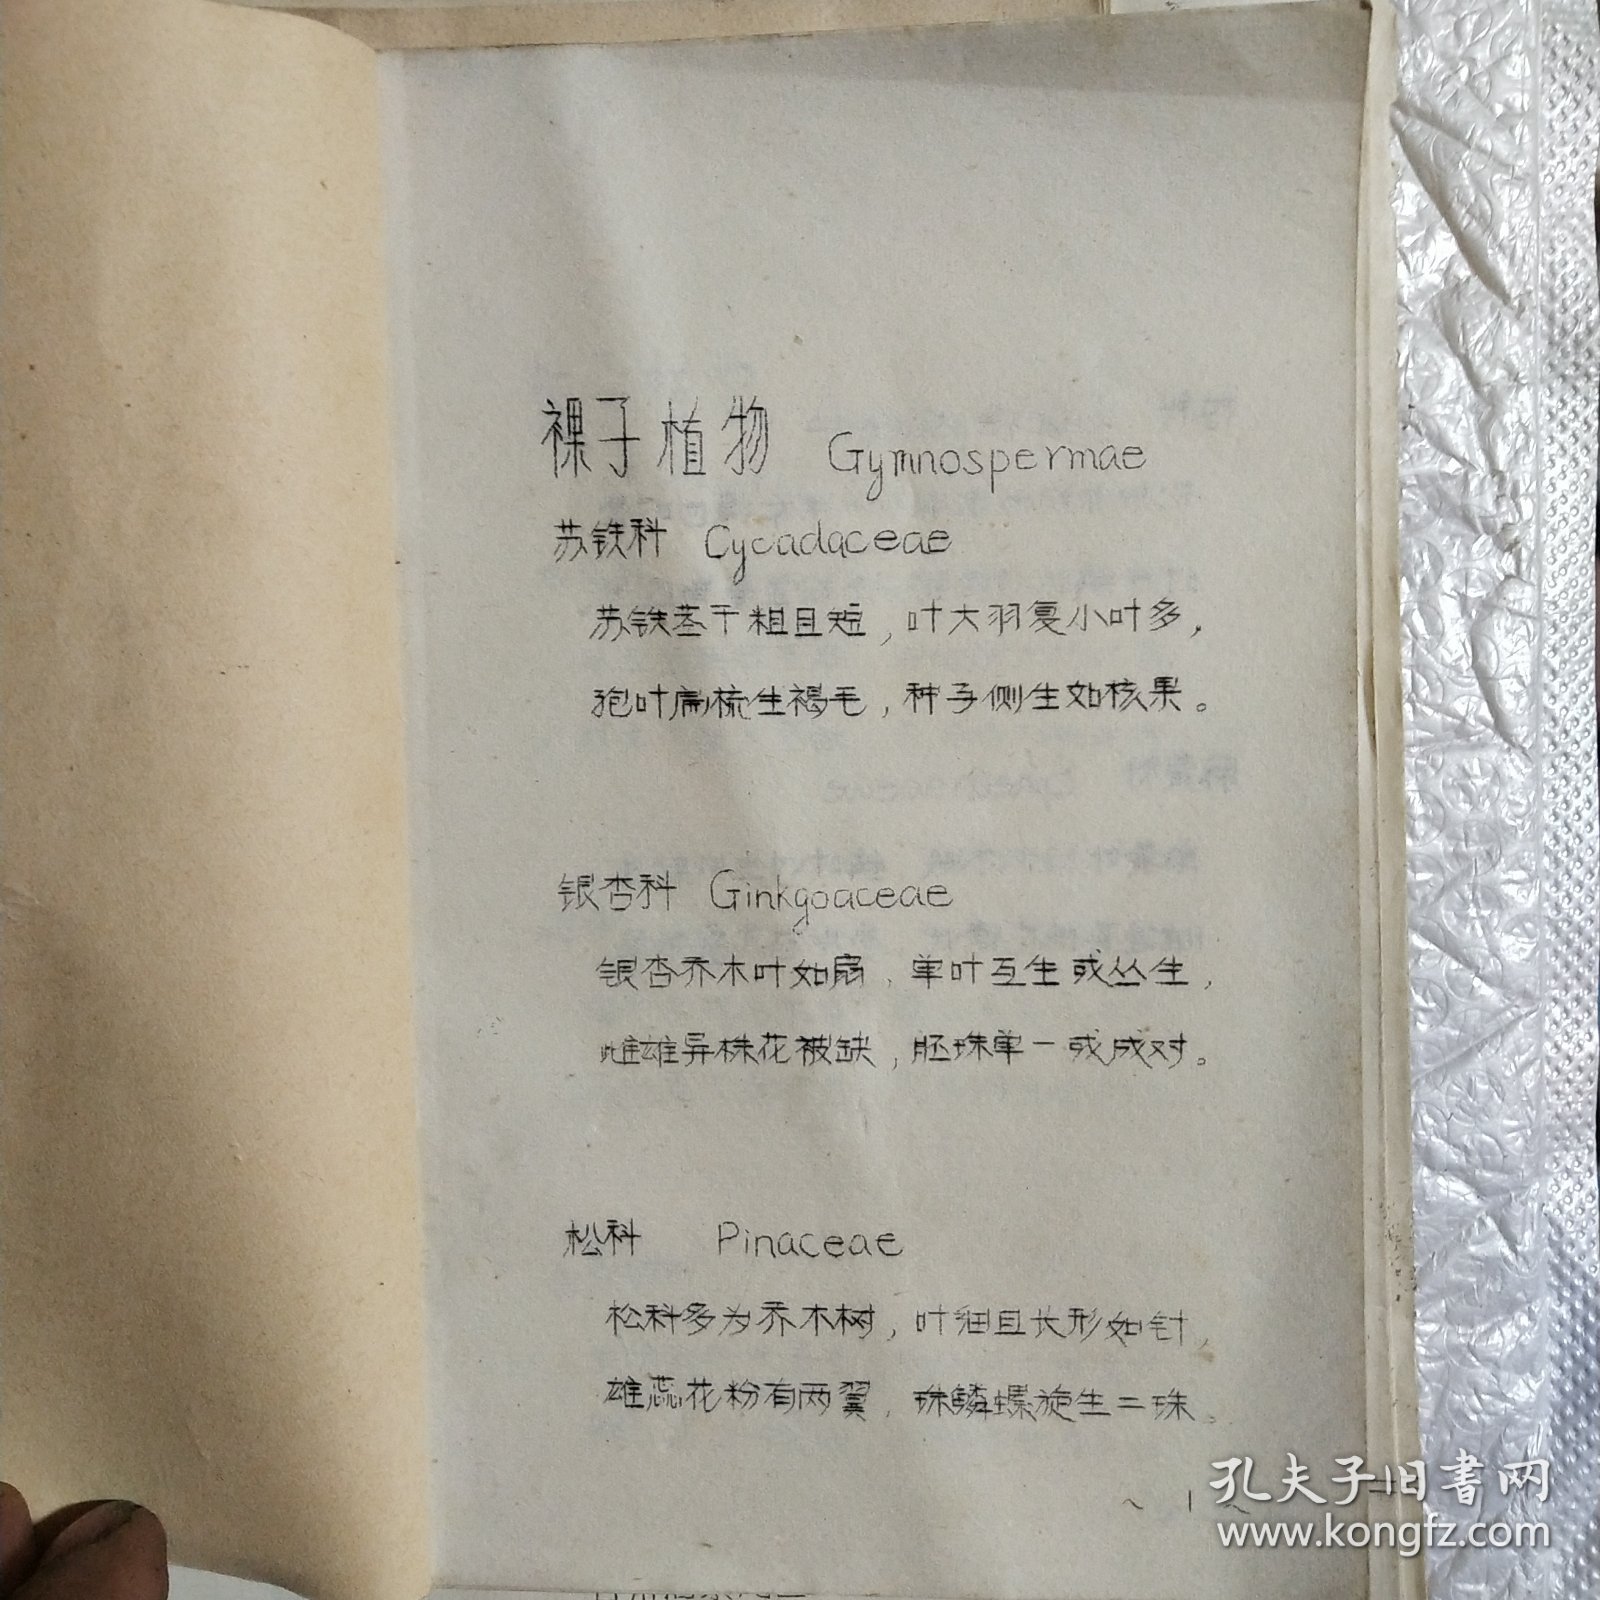 裸子植物 Gymnospermae
苏铁科 Cycadaceae
苏铁茎干粗且短，叶大羽复小叶多，
孢叶扁梳生褐毛，种子侧生如核果。
银杏科 Ginkgoaceae
银杏乔木叶如扇，单叶互生或丛生，
雌雄异株花被缺，胚珠单一或成对。
松科 Pinaceae
松科多为乔木树，叶细且长形如针，
雄蕊花粉有两翼，珠鳞螺旋生二珠。
~1~
孔夫子旧书网
www.kongfz.com